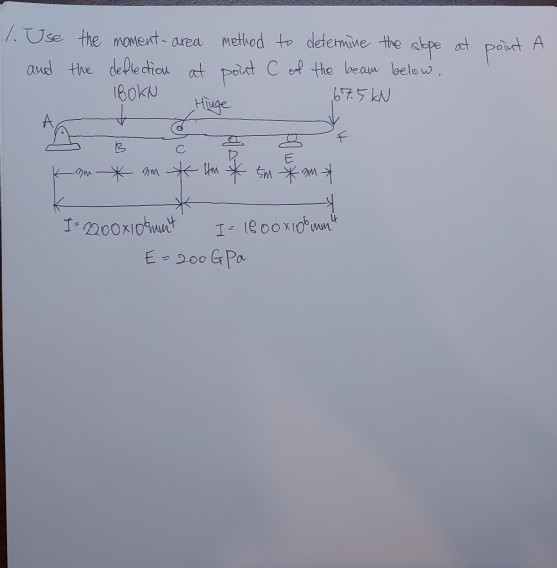 1. Use the moment-area method to determine the slope at point A
and the deflection at point C of the beam below.
180kN
67.5 kN
Hinge
A
B
C
D
E
F
3m 3m 4m 5m 3m
I= 2200×10⁶mm⁴ I= 1800×10⁶mm⁴
E = 200GPa